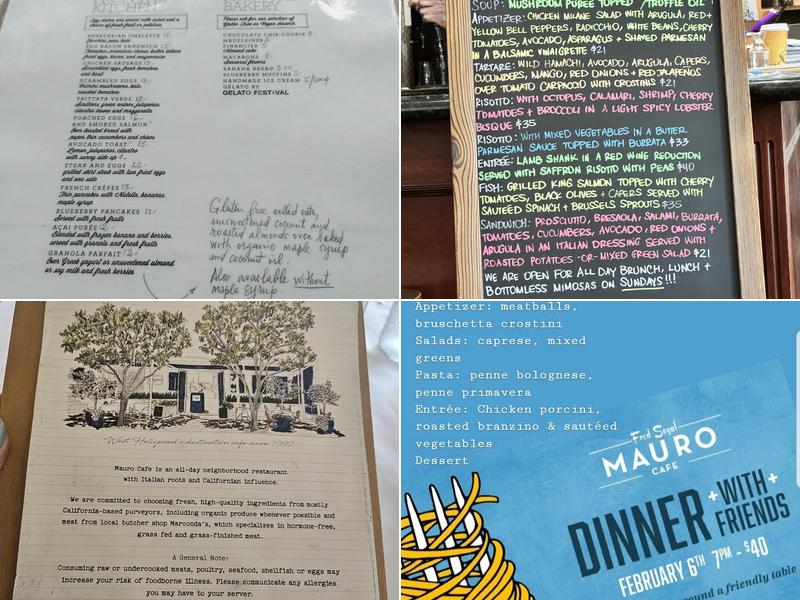 KITCHEN
Egg dishes are served with salad and a
choice of fresh fruit or potatoes
VEGETARIAN OMELETTE 15-
Zucchini, peas, kale
EGG BACON SANDWICH 15-
fried eggs, bacon and mayonnaise
CHICKEN SAUSAGE 15-
Scrambled eggs, fresh tomatoes
and basil
SCRAMBLED EGGS
Cremini mushrooms, kale
roasted tomatoes
FRITTATA VERDE 15-
Scallions, green onions, jalapeños,
cilantro leaves and mozzarella
POACHED EGGS 16-
AND SMOKED SALMON
Over toasted bread with
paper thin cucumbers and chives
AVOCADO TOAST
Lemon, jalapeños, cilantro
with sunny side up 4-
STEAK AND EGGS 22-
grilled skirt steak with two fried eggs
and one side
FRENCH CRÊPES 13-
Thin pancakes with Nutella, bananas,
maple syrup
BLUEBERRY PANCAKES 15-
Served with fresh fruits
AÇAI PURÉE 12-
Blended with frozen banana and berries,
served with granola and fresh fruits
GRANOLA PARFAIT 12-
Over Greek yogurt or unsweetened almond
or soy milk and fresh berries
BAKERY
Please ask for our selection of
Gluten Free or Vegan desserts
CHOCOLATE CHIP COOKIE 3-
MADELEINES
FINANCIER 3-
Almond cake
MACARONS
Seasonal flavors
BANANA BREAD 3.50
BLUEBERRY MUFFINS 3-
HANDMADE ICE CREAM 5/scoop
GELATO BY
GELATO FESTIVAL
Gluten free rolled oats,
unsweetened coconut and
roasted almonds oven baked
with organic maple syrup
and coconut oil.
Also available without
maple syrup.
SOUP: MUSHROOM PURÉE TOPPED / TRUFFLE OIL
APPETIZER: CHICKEN MILANE SALAD WITH ARUGULA, RED+
YELLOW BELL PEPPERS, RADICCHIO, WHITE BEANS, CHERRY
TOMATOES, AVOCADO, ASPARAGUS + SHAVED PARMESAN
IN A BALSAMIC VINAIGRETTE $21
TARTARE: WILD HAMACHI, AVOCADO, ARUGULA, CAPERS,
CUCUMBERS, MANGO, RED ONIONS + RED JALAPENOS
OVER TOMATO CARPACCIO WITH CROSTINIS $21
RISOTTO: WITH OCTOPUS, CALAMARI, SHRIMP, CHERRY
TOMATOES + BROCCOLI IN A LIGHT SPICY LOBSTER
BISQUE $35
RISOTTO: WITH MIXED VEGETABLES IN A BUTTER
PARMESAN SAUCE TOPPED WITH BURRATA $33
ENTRÉE: LAMB SHANK IN A RED WINE REDUCTION
SERVED WITH SAFFRON RISOTTO WITH PEAS $40
FISH: GRILLED KING SALMON TOPPED WITH CHERRY
TOMATOES, BLACK OLIVES + CAPERS SERVED WITH
SAUTÉED SPINACH + BRUSSELS SPROUTS $35
SANDWICH: PROSCIUTTO, BRESAOLA, SALAMI, BURRATA,
TOMATOES, CUCUMBERS, AVOCADO, RED ONIONS +
ARUGULA IN AN ITALIAN DRESSING SERVED WITH
ROASTED POTATOES -OR- MIXED GREEN SALAD $21
WE ARE OPEN FOR ALL DAY BRUNCH, LUNCH +
BOTTOMLESS MIMOSAS ON SUNDAYS!!!
West Hollywood's destination cafe since 1992
Mauro Cafe is an all-day neighborhood restaurant
with Italian roots and Californian influence.
We are committed to choosing fresh, high-quality ingredients from mostly
California-based purveyors, including organic produce whenever possible and
meat from local butcher shop Marconda's, which specializes in hormone-free,
grass fed and grass-finished meat.
A General Note:
Consuming raw or undercooked meats, poultry, seafood, shellfish or eggs may
increase your risk of foodborne illness. Please communicate any allergies
you may have to your server.
Appetizer: meatballs,
bruschetta crostini
Salads: caprese, mixed
greens
Pasta: penne bolognese,
penne primavera
Entrée: Chicken porcini,
roasted branzino & sautéed
vegetables
Dessert
Fred Segal
MAURO
CAFE
DINNER +WITH+
FRIENDS
FEBRUARY 6TH 7PM - $40
round a friendly table